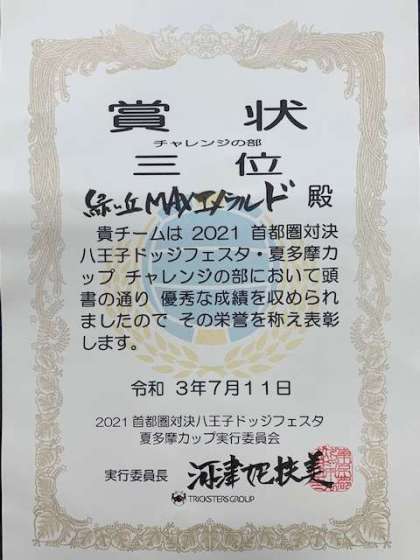 賞状
チャレンジの部
三位
緑ヶ丘MAXエメラルド 殿
貴チームは 2021 首都圏対決
八王子ドッジフェスタ・夏多摩カ
ップ チャレンジの部において頭
書の通り 優秀な成績を収められ
ましたので その栄誉を称え表彰
します。
令和 3年7月11日
2021首都圏対決八王子ドッジフェスタ
夏多摩カップ実行委員会
実行委員長 河津
TRICKSTERS GROUP